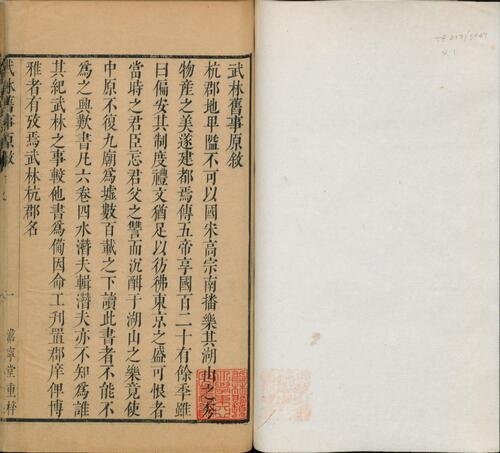 武林舊事原敘
杭郡地卑隘不可以國宋高宗南播樂其湖山之秀
物産之美遂建都焉傳五帝享國百二十有餘季雖
曰偏安其制度禮文猶足以彷彿東京之盛可恨者
當時之君臣忘君父之讐而沉酣于湖山之樂竟使
中原不復九廟爲墟數百載之下讀此書者不能不
爲之興歎書凡六卷四水潛夫輯潛夫亦不知爲誰
其紀武林之事較他書爲備因命工刊置郡庠俾博
雅者有攷焉武林杭郡名
武林舊事原敘
一
嘉寧堂重梓